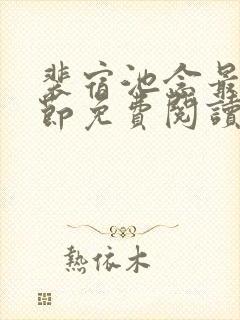 裴宿池念最
節免費閱讀
熱依木